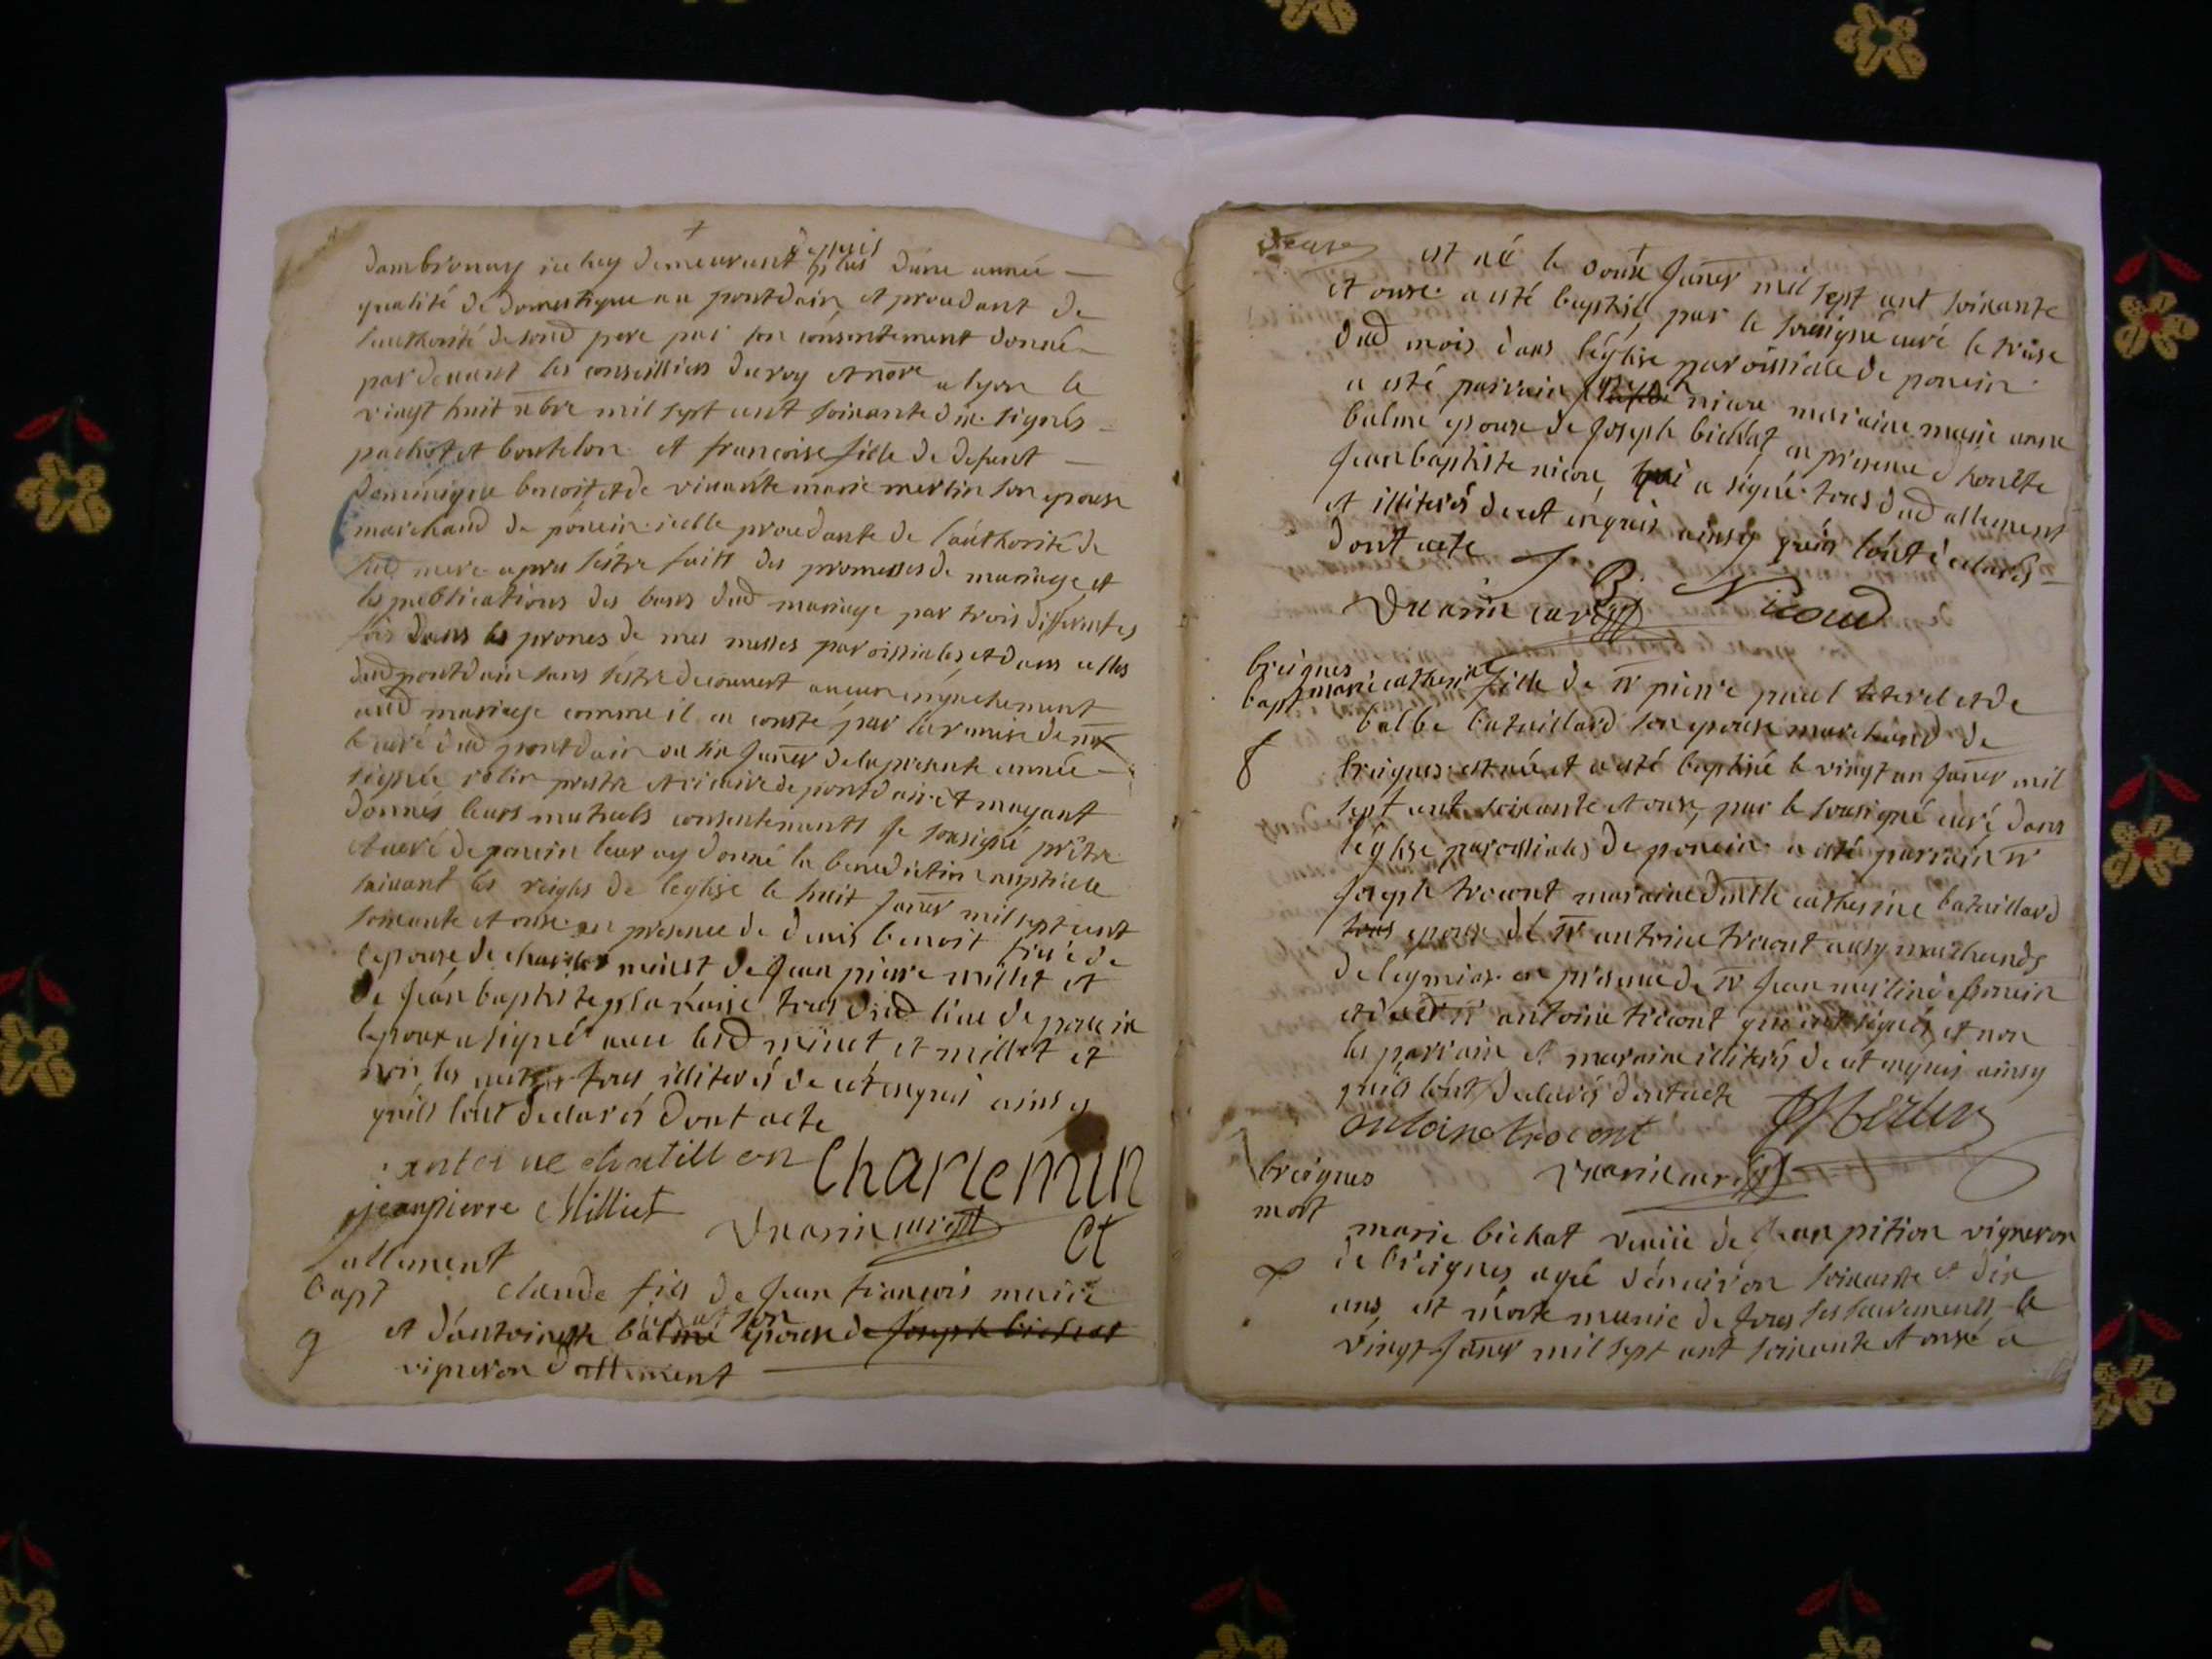 dambronay iceluy demeurant depuis plus d'une année
qualité de domestique au pontdain et procedant de
l'authorité de sond pere par son consentement donné
par devant les conseilliers du roy et nore a lyon le
vingt huit nbre mil sept cent soixante dix signés
pachot et bourbelon et francoise fille de defunt
dominique benoit et de vivante marie merlin son epouse
marchand de poncin icelle procedante de l'authorité de
sad mere apres s'estre faitt des promesses de mariage et
les publications des bans dud mariage par trois differentes
fois dans les prones de mes messes paroissiales et dans celles
dud pontdain sans s'estre decouvert aucun empechement
aud mariage comme il en conste par la remise de mr
le curé dud pontdain du six janer de la presente année
signée robin prestre et vicaire de pontdain et mayant
donnés leurs mutuels consentements je sousigné prêtre
et curé de poncin leur ay donné la benediction nuptiale
suivant les reigles de l'eglise le huit janer mil sept cent
soixante et onse en presence de denis benoit frere de
l'epouse de charles minet de jean pierre milliet et
de jean baptiste tous dud lieu de poncin
l'epoux a signé avec lesd minet et millet et
non les autres tous illiterés de ce enquis ainsy
qu'ils l'ont declarés dont acte
antoine chatillon Charle min
jeanpierre Milliet et
Duarin curé
allement
bapt claude fils de jean francois marie
9 et d'antoinette balme son epouse de joseph bichat
vigneron d'allement
est né le douse janer mil sept cent soixante
et onse a esté baptisé par le sousigné curé le treise
dud mois dans l'église paroissiale de poncin
a esté parrain claude nicou maraine marie anne
balme epouse de joseph bichat en presence d'honste
jean baptiste nicou, qui a signé tous dud allement
et illiterés de cet enquis ainsy qu'ils l'ont declarés
dont acte
J B Nicoud
Duarin curé
breignes
bapt marie catherine fille de sr pierre paul terel et de
balbe bataillard son epouse marchand de
8 breignes est née et a esté baptisée le vingt un janer mil
sept cent soixante et onse, par le sousigné curé dans
l'église paroissiales de poncin a esté parrain sr
joseph trocont maraine dmlle catherine bataillard
tous epouse de sr antoine trocont ausy marchands
de leymiat en presence de sr jean merlin de poncin
et dud sr antoine trocont qui ont signés et non
les parrain et maraine illiterés de cet enquis ainsy
qu'ils l'ont declarés dont acte
antoine trocont J Merlin
Duarin curé
breignes
mort
marie bichat veuve de jean pition vigneron
de breignes agée d'environ soixante et dix
ans, est morte munie de tous ses sacrements le
vingt janer mil sept cent soixante et onse a